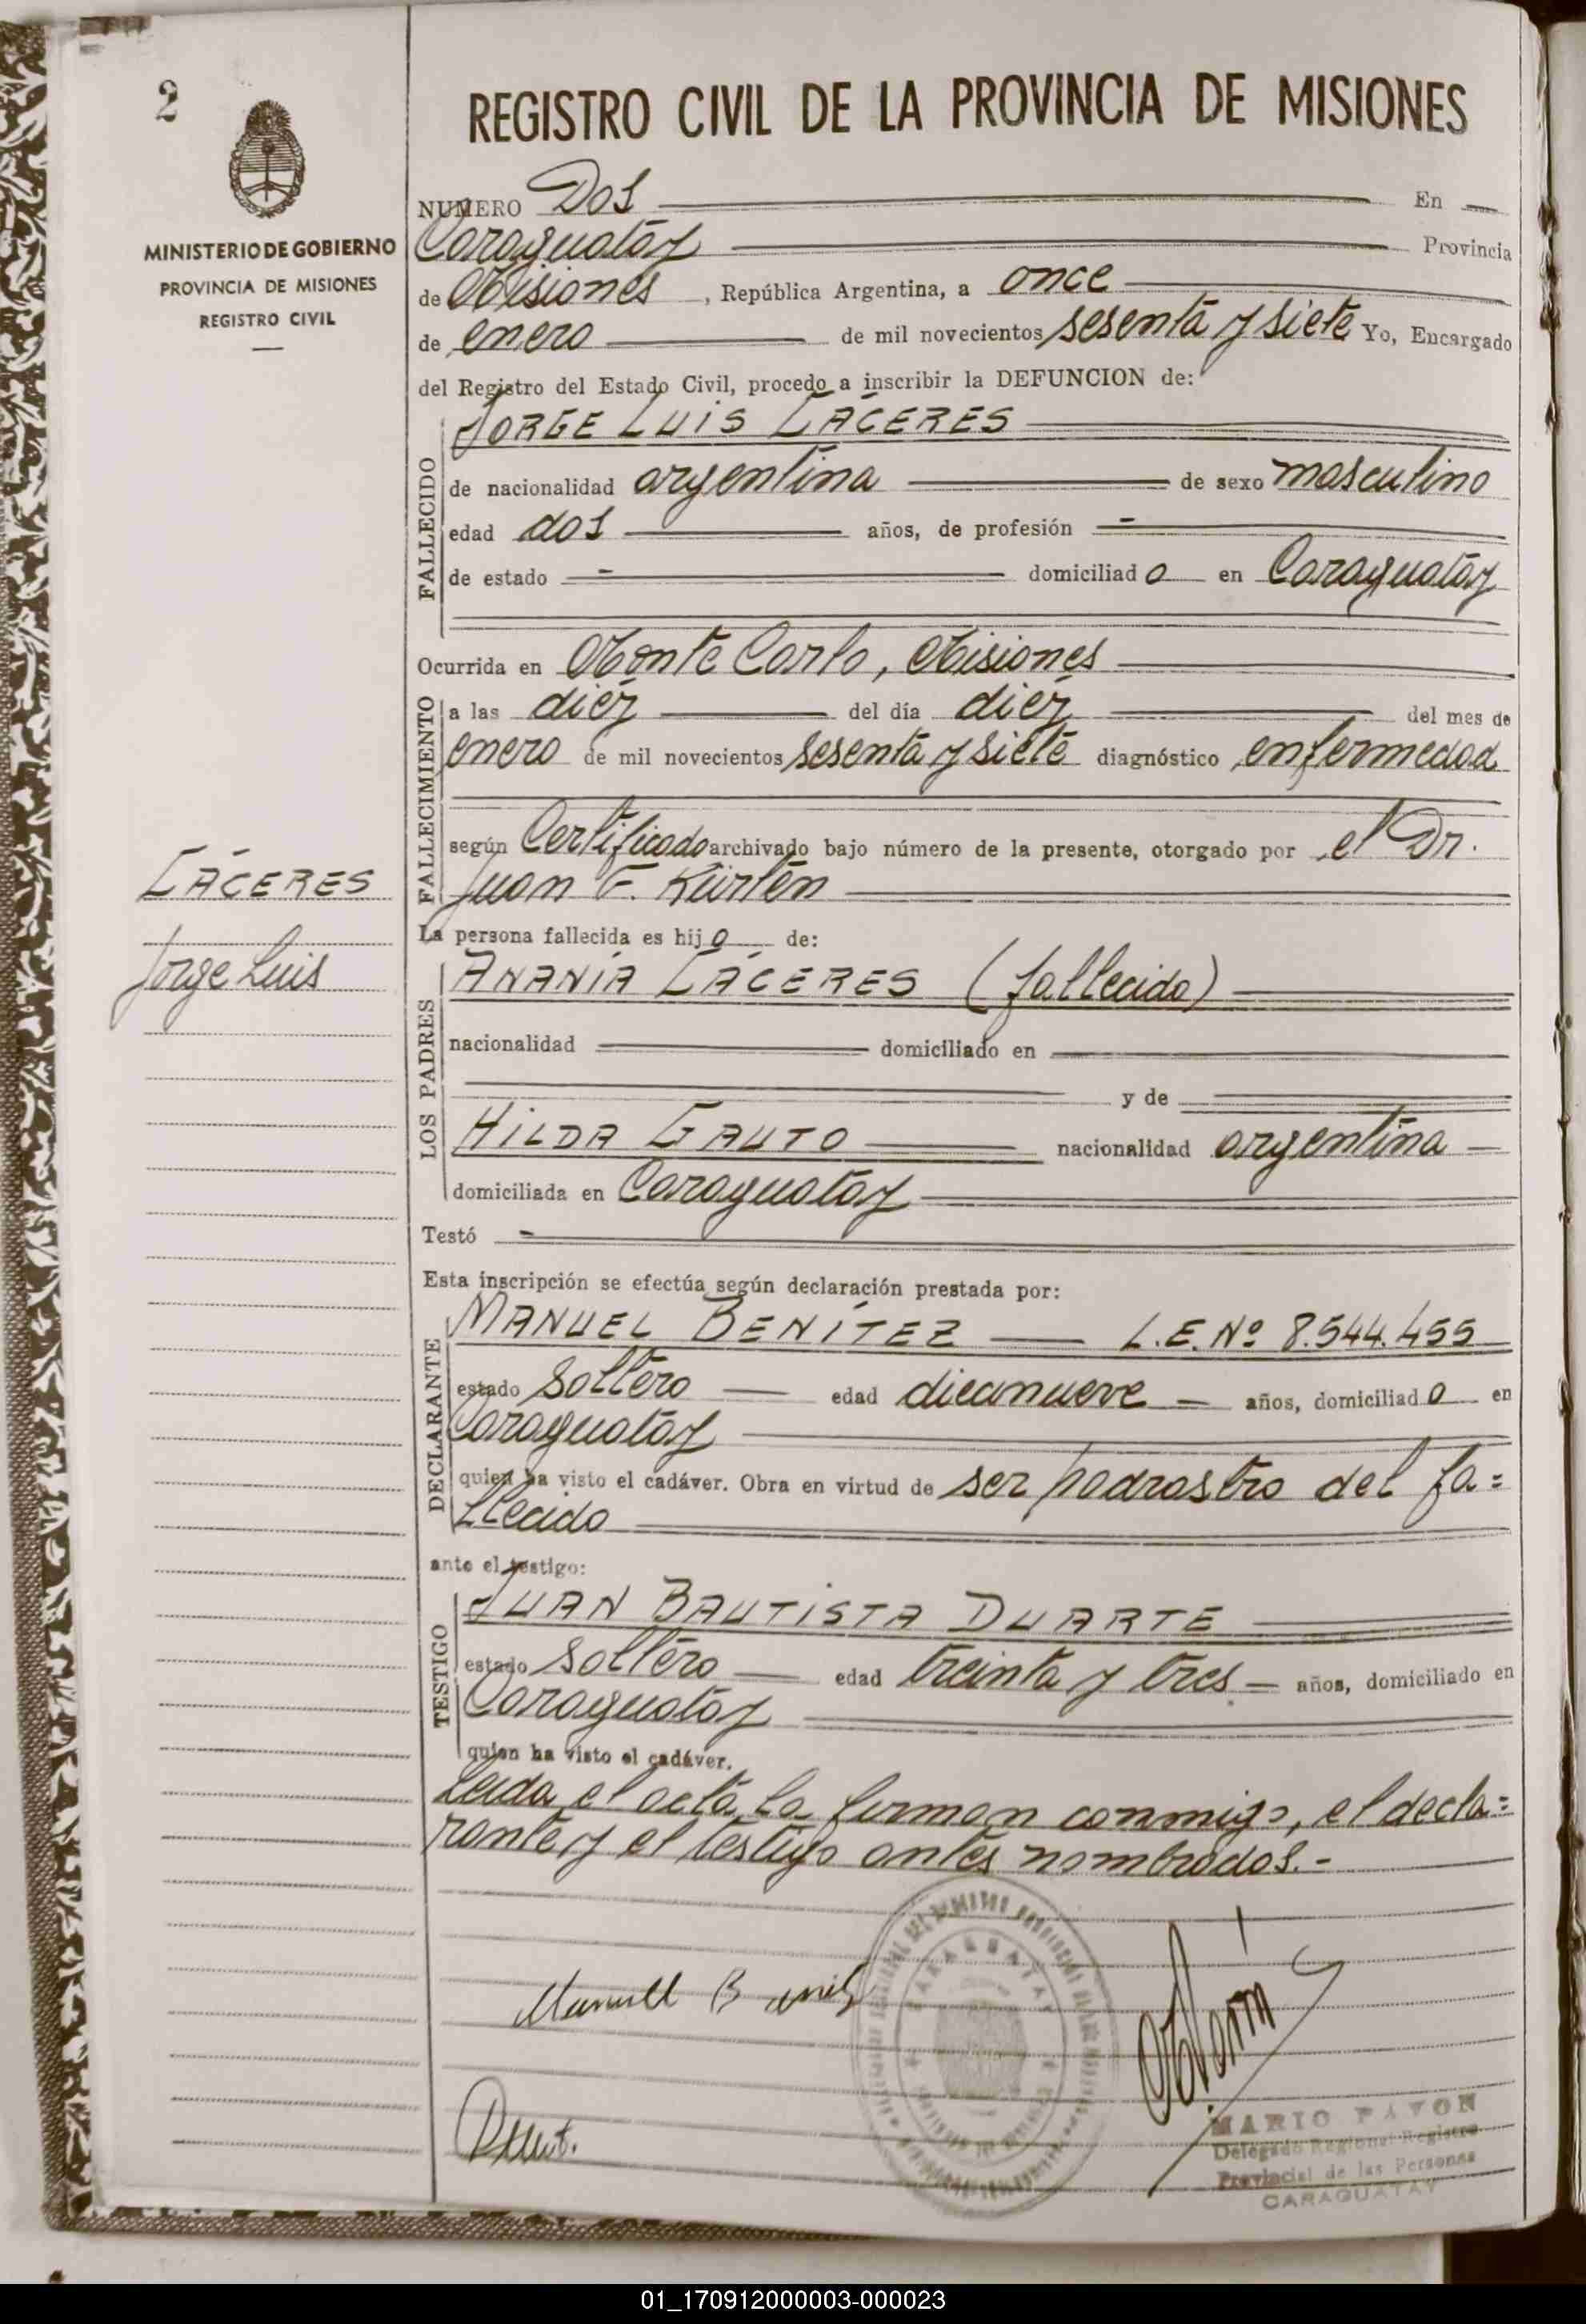 2
MINISTERIO DE GOBIERNO
PROVINCIA DE MISIONES
REGISTRO CIVIL
CÁCERES
Jorge Luis
REGISTRO CIVIL DE LA PROVINCIA DE MISIONES
NUMERO Dos En
Caraguatay Provincia
de Misiones, República Argentina, a once
de enero de mil novecientos sesenta y siete Yo, Encargado
del Registro del Estado Civil, procedo a inscribir la DEFUNCION de:
FALLECIDO
JORGE LUIS CÁCERES
de nacionalidad argentina de sexo masculino
edad dos años, de profesión -
de estado - domiciliado en Caraguatay
Ocurrida en Monte Carlo, Misiones
FALLECIMIENTO
a las diez del día diez del mes de
enero de mil novecientos sesenta y siete diagnóstico enfermedad
según Certificado archivado bajo número de la presente, otorgado por el Dr.
Juan F. Kürten
La persona fallecida es hijo de:
LOS PADRES
ANANÍA CÁCERES (fallecido)
nacionalidad domiciliado en
y de
HILDA GAUTO nacionalidad argentina
domiciliada en Caraguatay
Testó -
Esta inscripción se efectúa según declaración prestada por:
DECLARANTE
MANUEL BENÍTEZ L.E. Nº 8.544.455
estado soltero edad diecinueve años, domiciliado en
Caraguatay
quien ha visto el cadáver. Obra en virtud de ser padrastro del fa=
llecido
ante el testigo:
TESTIGO
JUAN BAUTISTA DUARTE
estado soltero edad treinta y tres años, domiciliado en
Caraguatay
quien ha visto el cadáver.
Leida el acta, la firman conmigo, el decla=
rante y el testigo antes nombrados.-
MARIO PAVON
Delegado Regional Registro
Provincial de las Personas
CARAGUATAY
01_170912000003-000023